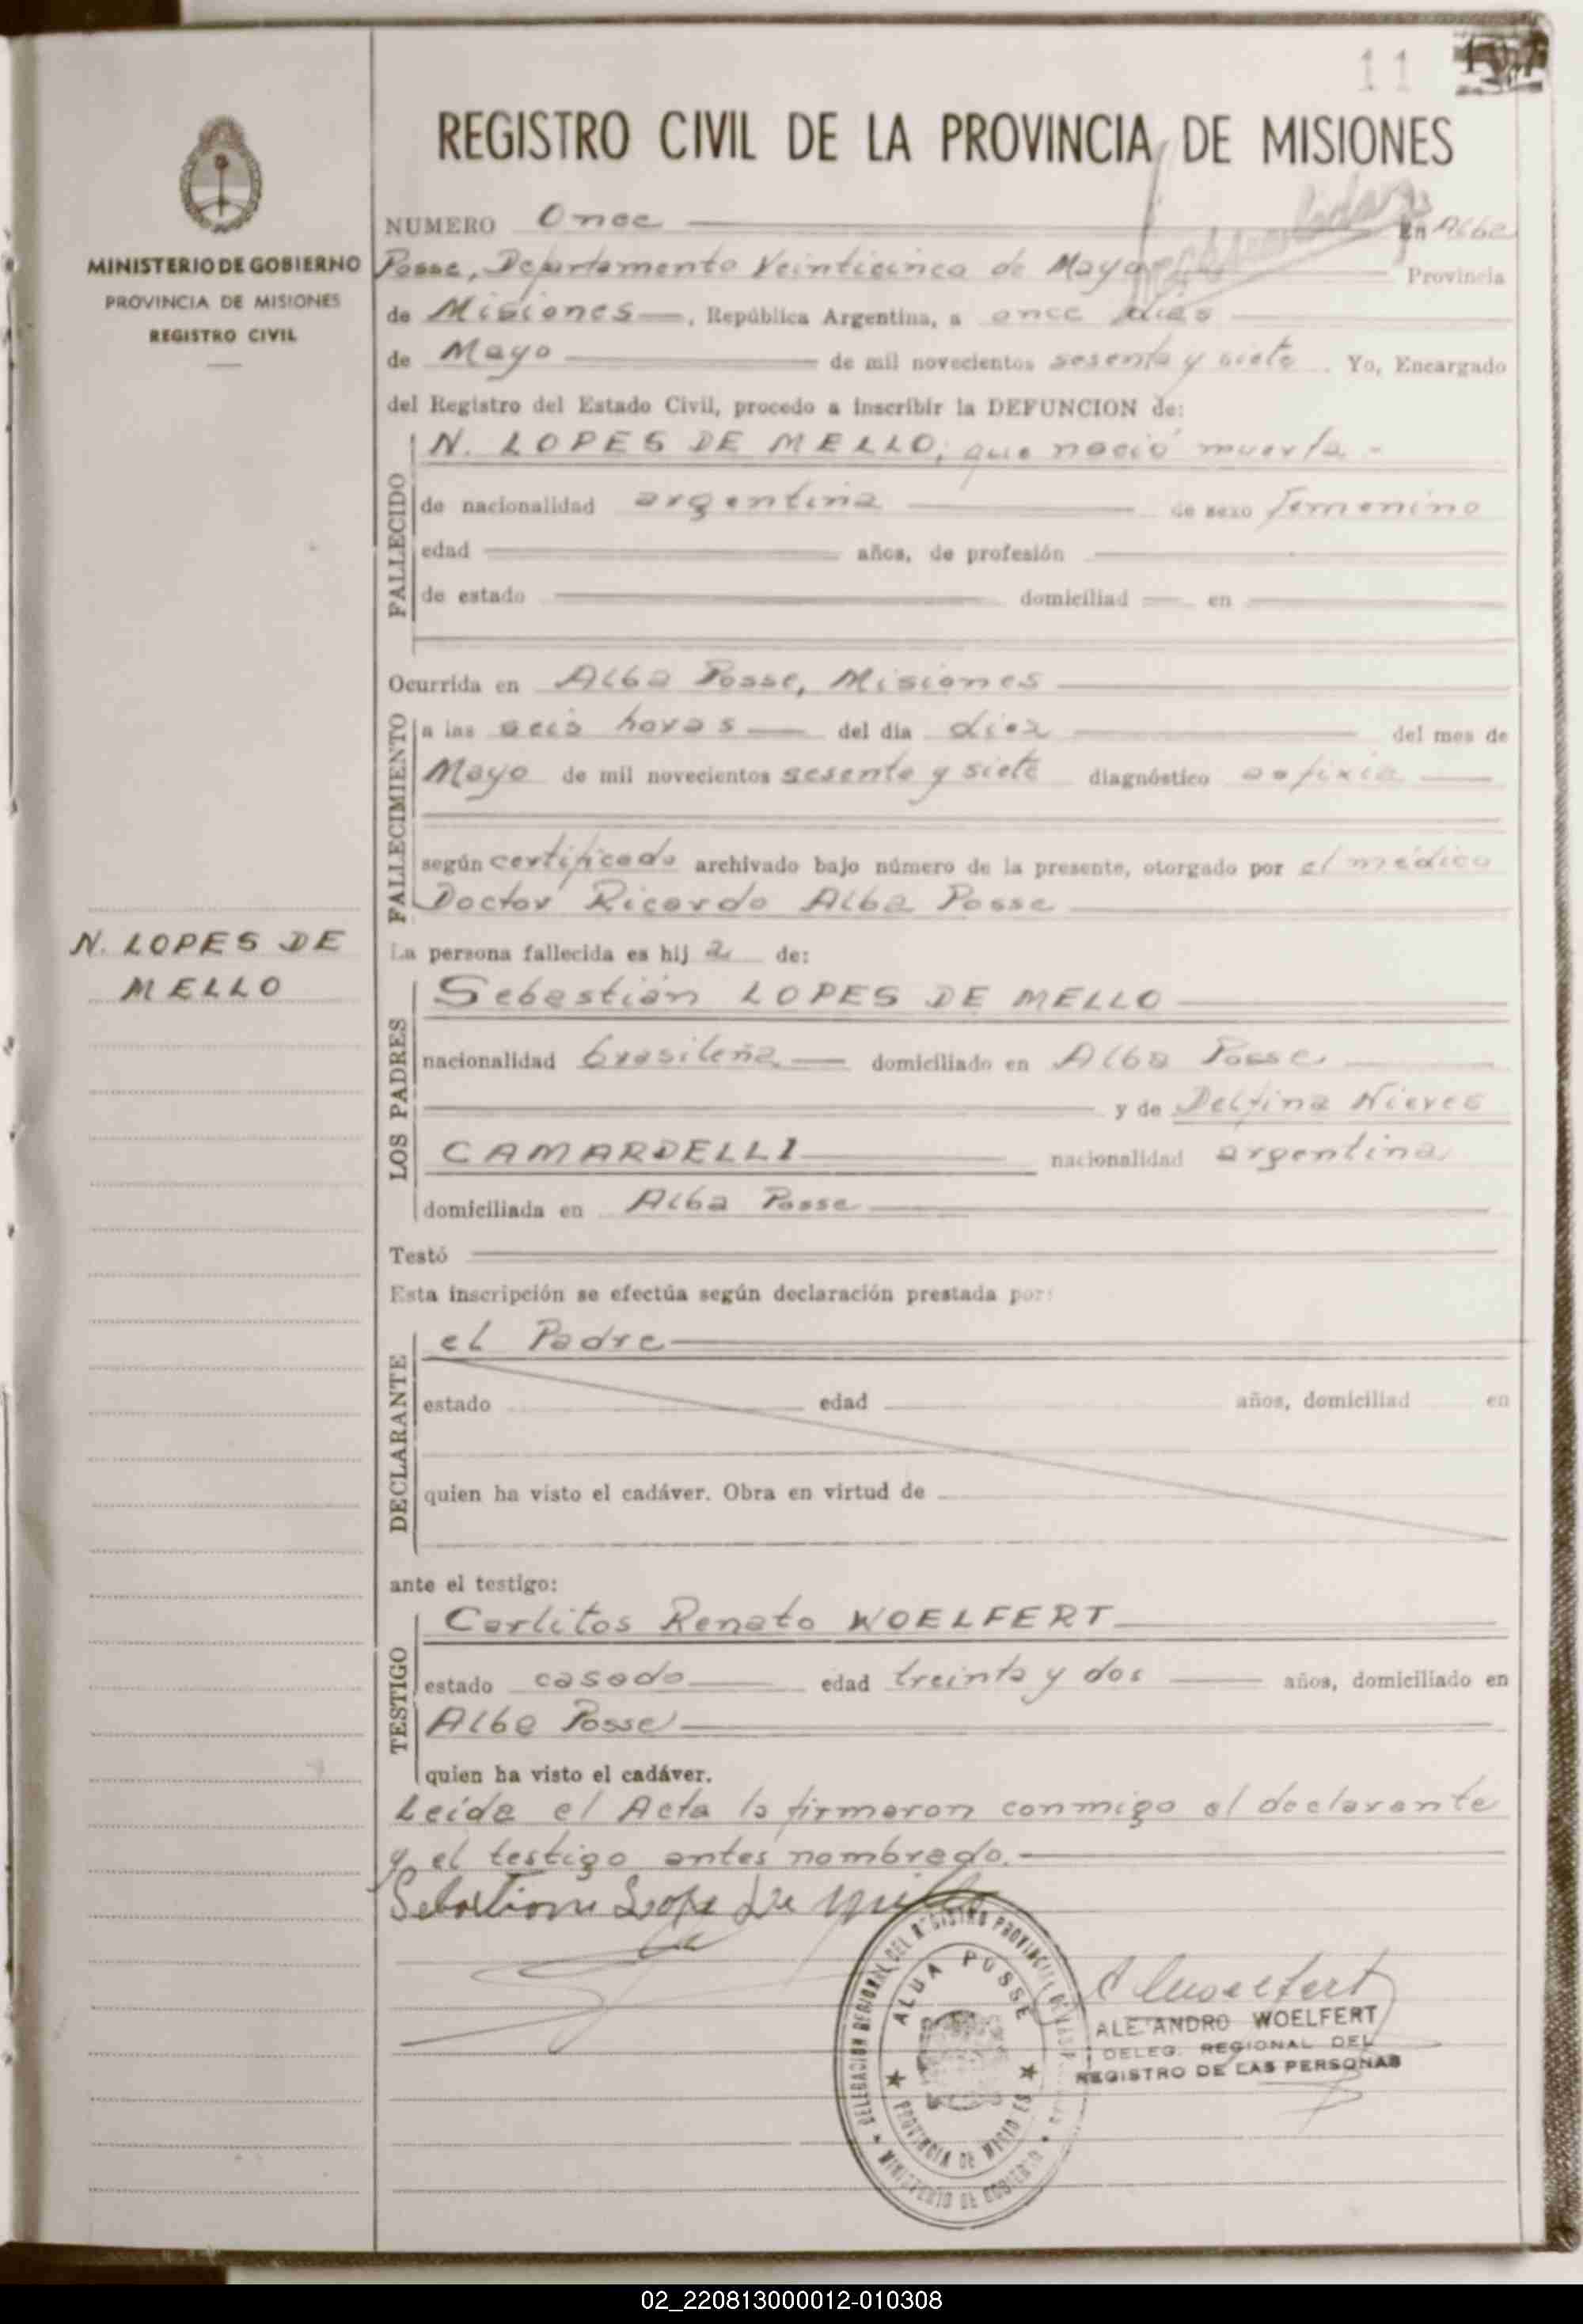 11
REGISTRO CIVIL DE LA PROVINCIA DE MISIONES
MINISTERIO DE GOBIERNO
PROVINCIA DE MISIONES
REGISTRO CIVIL
N. LOPES DE
MELLO
NUMERO Once En Alba
Posse, Departamento Veinticinco de Mayo Provincia
de Misiones, República Argentina, a once días
de Mayo de mil novecientos sesenta y siete. Yo, Encargado
del Registro del Estado Civil, procedo a inscribir la DEFUNCION de:
FALLECIDO
N. LOPES DE MELLO, que nació muerta.-
de nacionalidad argentina de sexo femenino
edad años, de profesión
de estado domiciliad en
Ocurrida en Alba Posse, Misiones
FALLECIMIENTO
a las seis horas del día diez del mes de
Mayo de mil novecientos sesenta y siete diagnóstico asfixia
según certificado archivado bajo número de la presente, otorgado por el médico
Doctor Ricardo Alba Posse
La persona fallecida es hij a de:
LOS PADRES
Sebastián LOPES DE MELLO
nacionalidad brasileña domiciliado en Alba Posse
y de Delfina Nieves
CAMARDELLI nacionalidad argentina
domiciliada en Alba Posse
Testó
Esta inscripción se efectúa según declaración prestada por:
DECLARANTE
el Padre
estado edad años, domiciliad en
quien ha visto el cadáver. Obra en virtud de
ante el testigo:
TESTIGO
Carlitos Renato WOELFERT
estado casado edad treinta y dos años, domiciliado en
Alba Posse
quien ha visto el cadáver.
Leída el Acta la firmaron conmigo el declarante
y el testigo antes nombrado.
DELEGACION REGIONAL DEL REGISTRO PROVINCIAL
ALBA POSSE
PROVINCIA DE MISIONES
MINISTERIO DE GOBIERNO
ALEJANDRO WOELFERT
DELEG. REGIONAL DEL
REGISTRO DE LAS PERSONAS
02_220813000012-010308